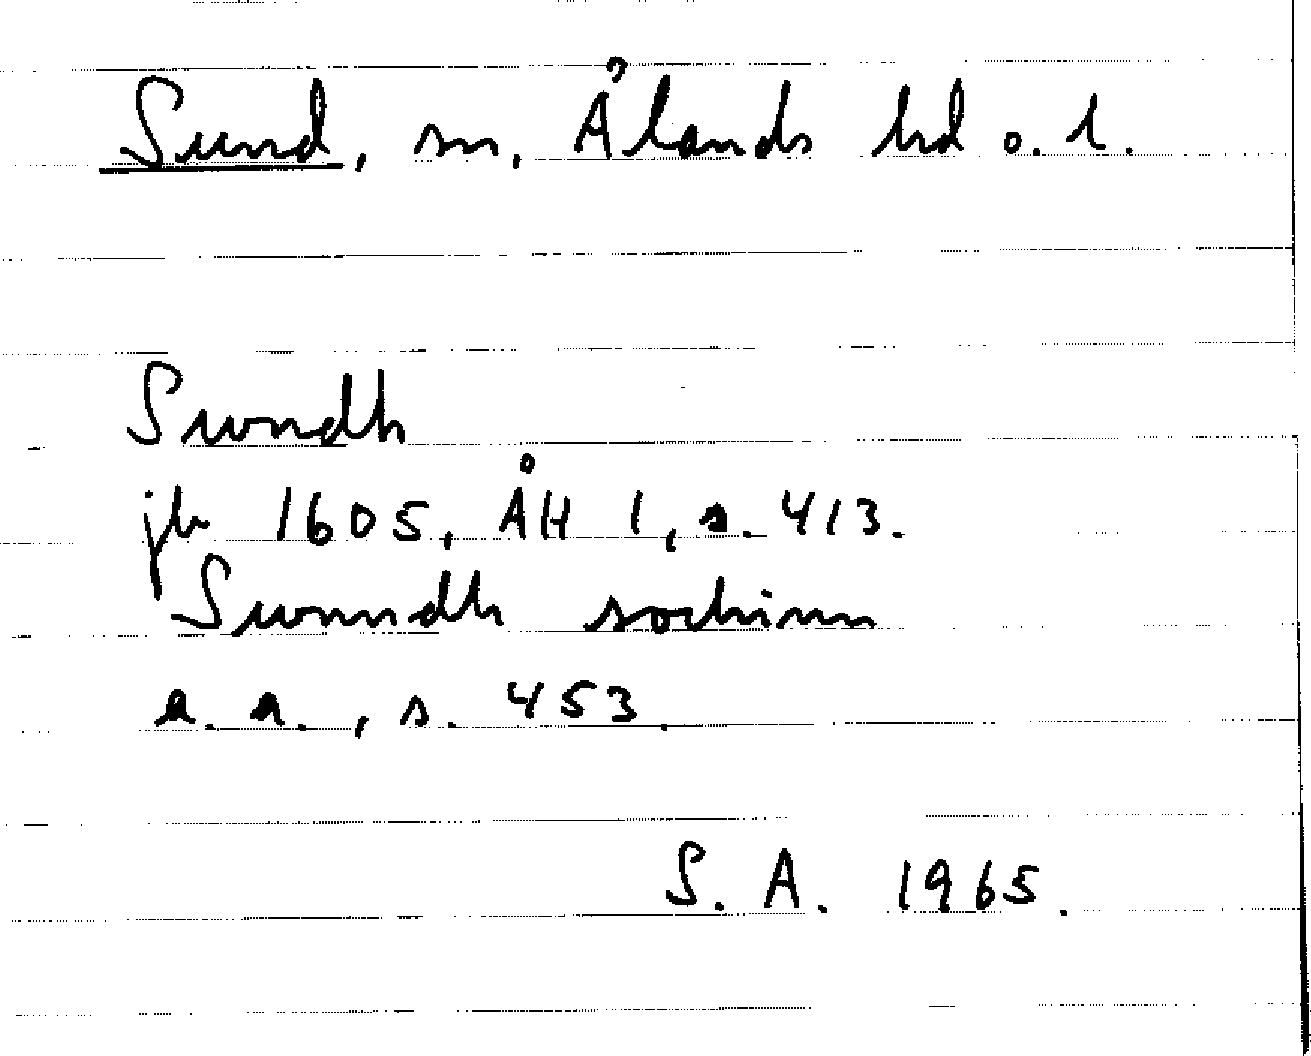 Sund, sn, Ålands hd o. l.
Swndh
jb 1605, ÅH 1, s. 413.
Swnndh sochinn
a. a., s. 453.
S. A. 1965.